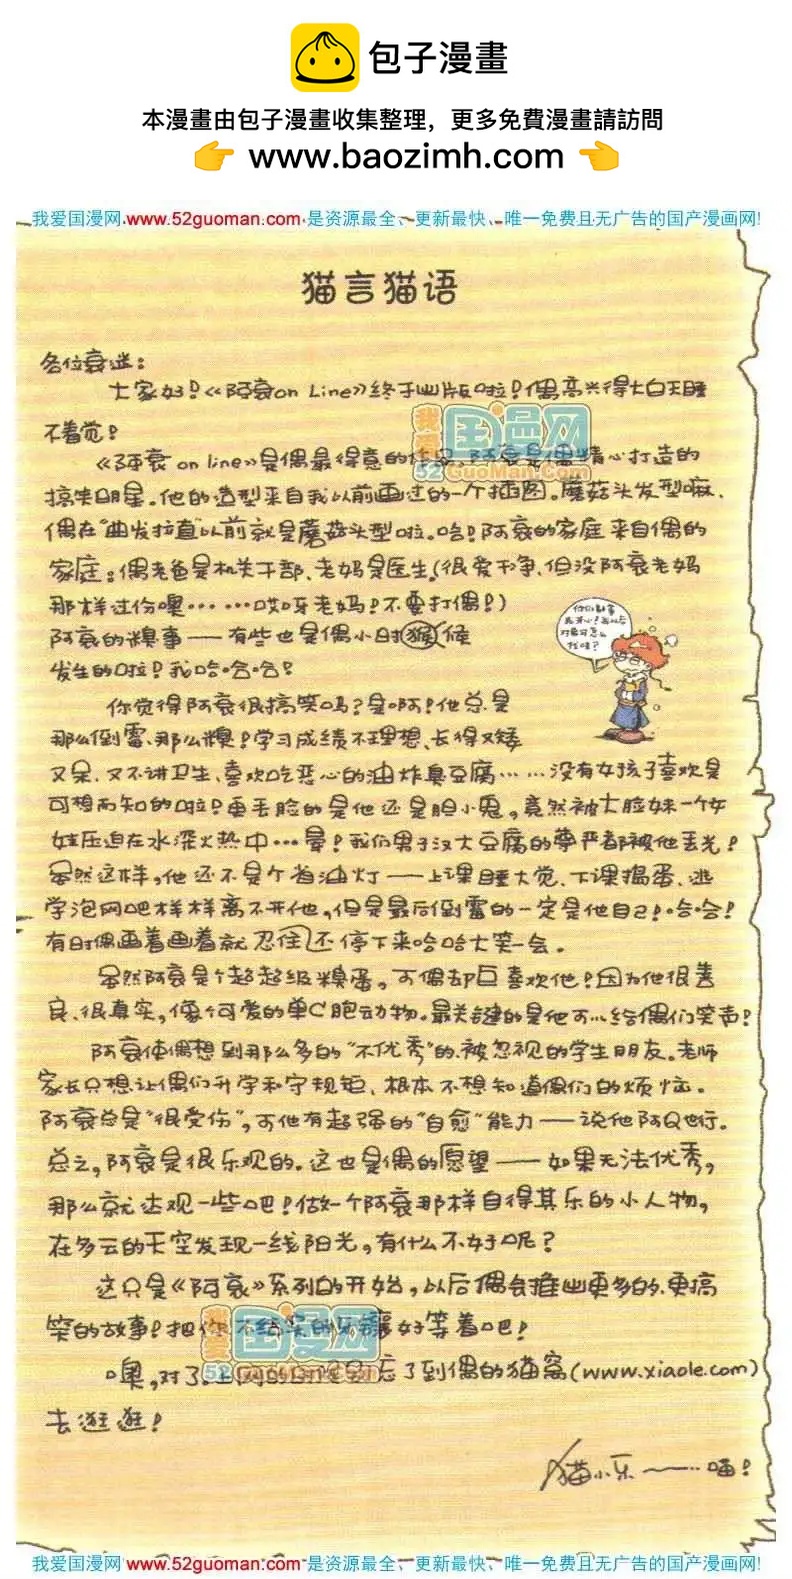 包子漫畫
本漫畫由包子漫畫收集整理，更多免費漫畫請訪問
www.baozimh.com
我爱国漫网 www.52guoman.com 是资源最全、更新最快、唯一免费且无广告的国产漫画网!
猫言猫语
各位衰迷：
大家好！《阿衰on Line》终于出版啦！偶高兴得大白天睡
不着觉！
《阿衰 on line》是偶最得意的作品，阿衰是偶精心打造的
搞笑明星。他的造型来自我以前画过的一个插图。蘑菇头发型嘛，
偶在"曲发拉直"以前就是蘑菇头型啦。哈！阿衰的家庭来自偶的
家庭：偶老爸是机关干部、老妈是医生（很爱干净，但没阿衰老妈
那样过份噢……哎呀老妈！不要打偶！）
阿衰的糗事——有些也是偶小时猴候
发生的啦！我哈哈哈！
你觉得阿衰很搞笑吗？是啊！他总是
那么倒霉、那么糗！学习成绩不理想、长得又矮
又呆、又不讲卫生、喜欢吃恶心的油炸臭豆腐……没有女孩子喜欢是
可想而知的啦！更丢脸的是他还是胆小鬼，竟然被大脸妹一个女
娃压迫在水深火热中…晕！我们男子汉大豆腐的尊严都被他丢光！
虽然这样，他还不是个省油灯——上课睡大觉、下课捣蛋、逃
学泡网吧样样离不开他，但是最后倒霉的一定是他自己！哈哈！
有时偶画着画着就忍住不停下来哈哈大笑一会。
虽然阿衰是个超超超级糗蛋，可偶却巨喜欢他！因为他很善
良、很真实，像个可爱的单C胞动物。最关键的是他可以给偶们笑声！
阿衰使偶想到那么多的"不优秀"的、被忽视的学生朋友。老师
家长只想让偶们升学和守规矩、根本不想知道偶们的烦恼。
阿衰总是"很受伤"，可他有超强的"自愈"能力——说他阿Q也行。
总之，阿衰是很乐观的。这也是偶的愿望——如果无法优秀，
那么就达观一些吧！做一个阿衰那样自得其乐的小人物，
在多云的天空发现一线阳光，有什么不好呢？
这只是《阿衰》系列的开始，以后偶会推出更多的、更搞
笑的故事！把你不结实的牙镶好等着吧！
噢，对了上网的时候别忘了到偶的猫窝(www.xiaole.com)
去逛逛！
猫小乐~~…喵！
我爱国漫网
52GuoMan.Com
我爱国漫网
52GuoMan.Com
我爱国漫网 www.52guoman.com 是资源最全、更新最快、唯一免费且无广告的国产漫画网!